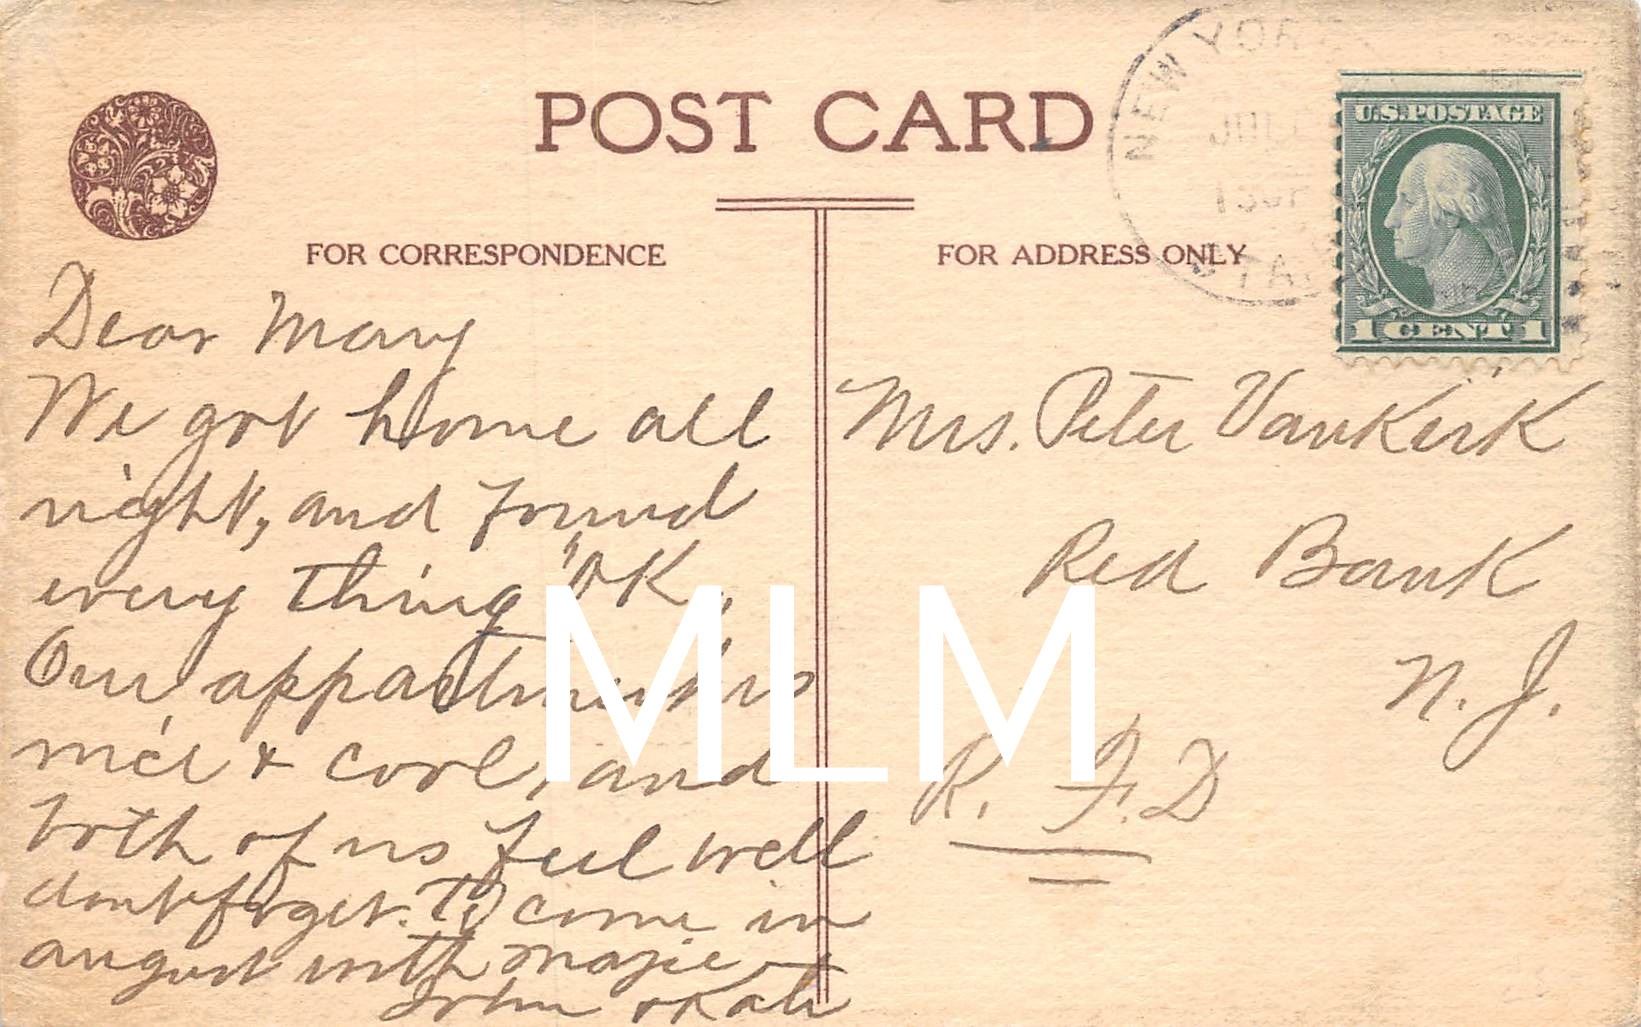 POST CARD
NEW YORK
JUL
STA
U.S. POSTAGE
1 CENT 1
FOR CORRESPONDENCE
FOR ADDRESS ONLY
Dear Mary
We got home all
right, and found
every thing "OK,
Our appartment is
nice & cool, and
both of us feel well
dont forget. To come in
august with
John & Kate
Mrs. Peter VanKirk
Red Bank
N. J.
R. F. D
MLM